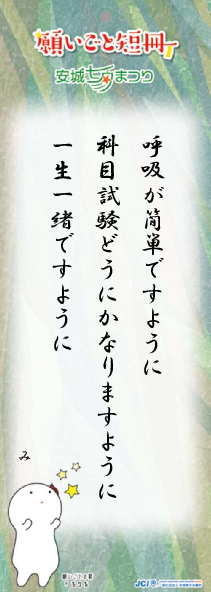 願いごと短冊
安城七夕まつり
呼吸が簡単ですように
科目試験どうにかなりますように
一生一緒ですように
み
JCI